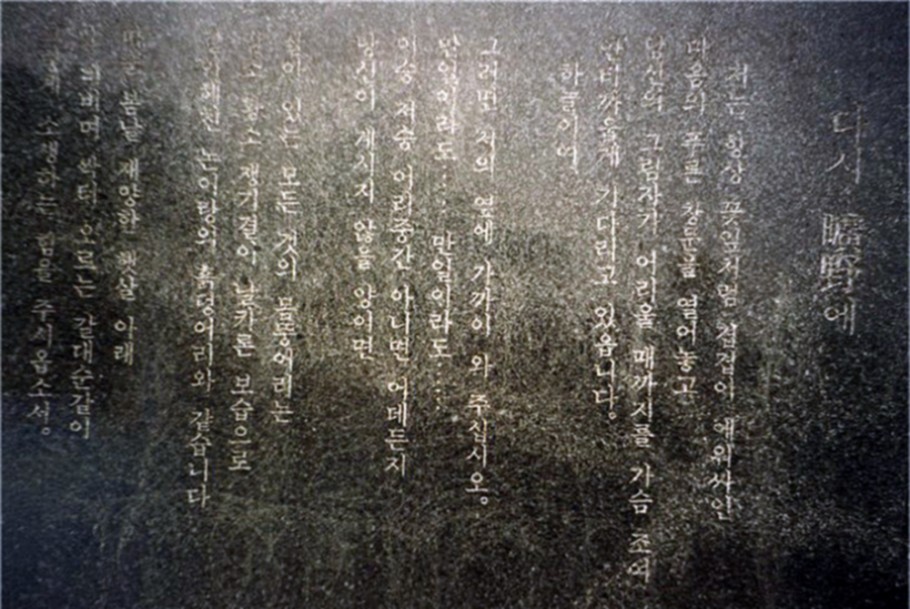 다시 曠野에
저는 항상 꽃잎처럼 겹겹이 에워싸인
마음의 푸른 창문을 열어놓고
당신의 그림자가 어리울 때까지를 가슴 조여
안타까웁게 기다리고 있읍니다.
하늘이여
그러면 저의 옆에 가까이 와 주십시오。
만일이라도…… 만일이라도……
이승 저승 어리중간 아니면 어데든지
당신이 계시지 않을 양이면
있는 모든 것의 몸뚱어리는
암소 황소 쟁기결이 날카론 보습으로
갈아헤친 논이랑의 흙덩어리와 같습니다
봄날 재양한 햇살 아래
눈비비며 싹터 오르는 갈대순같이
소생하는 힘을 주시옵소서.